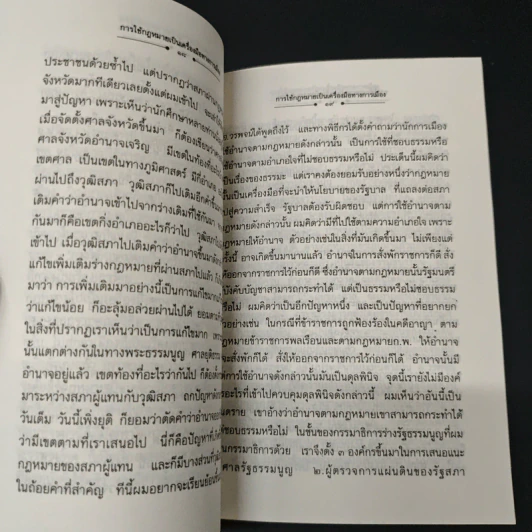 การใช้กฎหมายเป็นเครื่องมือทางการเมือง
๑๘
ประชาชนด้วยซ้ำไป แต่ปรากฏว่าสภา
จังหวัดมากทีเดียวเลยตั้งแต่ผมเข้าไป
มาสู่ปัญหา เพราะเห็นว่านักศึกษาหลาย
เมื่อจัดตั้งศาลจังหวัดขึ้นมา ก็ต้องเขียน
ศาลจังหวัดอำนาจเจริญ มีเขตในท้องที่
เขตศาล เป็นเขตในทางภูมิศาสตร์ มีกี่อำเภอ
ผ่านไปถึงวุฒิสภา วุฒิสภาก็ไปเติมอีกคำ
เดิมคำว่าอำนาจเข้าไปจากร่างเดิมที่ใช้กันมา
กันมาก็คือเขตกิ่งอำเภออะไรก็ว่าไป วุฒิสภา
เข้าไป เมื่อวุฒิสภาไปเติมคำว่าอำนาจขึ้นมา
แก้ไขเพิ่มเติมร่างกฎหมายที่ผ่านสภาไปแล้ว
มาว่า การเพิ่มเติมมาอย่างนี้เป็นการแก้ไข
ว่าแก้ไขน้อย ก็อะลุ้มอล่วยผ่านไปได้
ในสิ่งที่ปรากฏเราเห็นว่าเป็นการแก้ไขมาก
นั้นแตกต่างกันในทางพระธรรมนูญ ศาลยุติธรรม
อำนาจอยู่แล้ว เขตท้องที่อะไรว่ากันไป
มาระหว่างสภาผู้แทนกับวุฒิสภา ถกปัญหา
วันเต็ม วันนี้เพิ่งยุติ ก็ยอมว่าตัดคำว่าอำนาจ
ว่ามีเขตตามที่เราเสนอไป นี่ก็คือปัญหาที่
กฎหมายของสภาผู้แทน และก็มีบางส่วนที่
ในถ้อยคำที่สำคัญ ทีนี้ผมอยากจะเรียนย้อน
การใช้กฎหมายเป็นเครื่องมือทางการเมือง
๑๙
อ.วรพจน์ได้พูดถึงไว้ และทางพิธีกรได้ตั้งคำถามว่านักการเมือง
ใช้อำนาจตามกฎหมายดังกล่าวนั้น เป็นการใช้ที่ชอบธรรมหรือ
อำนาจตามอำเภอใจที่ไม่ชอบธรรมหรือไม่ ประเด็นนี้ผมคิดว่า
เป็นเรื่องของธรรมะ แต่เราคงต้องยอมรับอย่างหนึ่งว่ากฎหมาย
นั้นเป็นเครื่องมือที่จะนำให้นโยบายของรัฐบาล ที่แถลงต่อสภา
ไปสู่ความสำเร็จ รัฐบาลต้องรับผิดชอบ แต่การใช้อำนาจตาม
กฎหมายดังกล่าวนั้น ผมคิดว่ามีที่ไปใช้ตามความอำเภอใจ เพราะ
กฎหมายให้อำนาจ ตัวอย่างเช่นในสิ่งที่มันเกิดขึ้นมา ไม่เพียงแต่
ครั้งนี้ อาจเกิดขึ้นมานานแล้ว อำนาจในการสั่งพักราชการก็ดี สั่ง
ให้ออกจากราชการไว้ก่อนก็ดี ซึ่งอำนาจตามกฎหมายนั้นรัฐมนตรี
บังคับบัญชาสามารถกระทำได้ แต่เป็นธรรมหรือไม่ชอบธรรม
หรือไม่ ผมคิดว่าก็เป็นอีกปัญหาหนึ่ง และเป็นปัญหาที่อยากยก
ตัวอย่างเช่น ในกรณีที่ข้าราชการถูกฟ้องร้องในคดีอาญา ตาม
กฎหมายข้าราชการพลเรือนและตามกฎหมายก.พ. ให้อำนาจ
จะสั่งพักก็ได้ สั่งให้ออกจากราชการไว้ก่อนก็ได้ อำนาจนั้นมี
การใช้อำนาจดังกล่าวนั้นมันเป็นดุลพินิจ จุดนี้เรายังไม่มีองค์
อะไรที่เข้าไปควบคุมดุลพินิจดังกล่าวนี้ ผมเห็นว่าอันนี้เป็น
อันตราย เขาอ้างว่าอำนาจตามกฎหมายเขาสามารถกระทำได้
ชอบธรรมหรือไม่ ในชั้นของกรรมาธิการร่างรัฐธรรมนูญที่ผม
เป็นกรรมาธิการด้วย เราจึงตั้ง ๓ องค์กรขึ้นมาในการเสนอแนะ
ศาลรัฐธรรมนูญ ๒.ผู้ตรวจการแผ่นดินของรัฐสภา